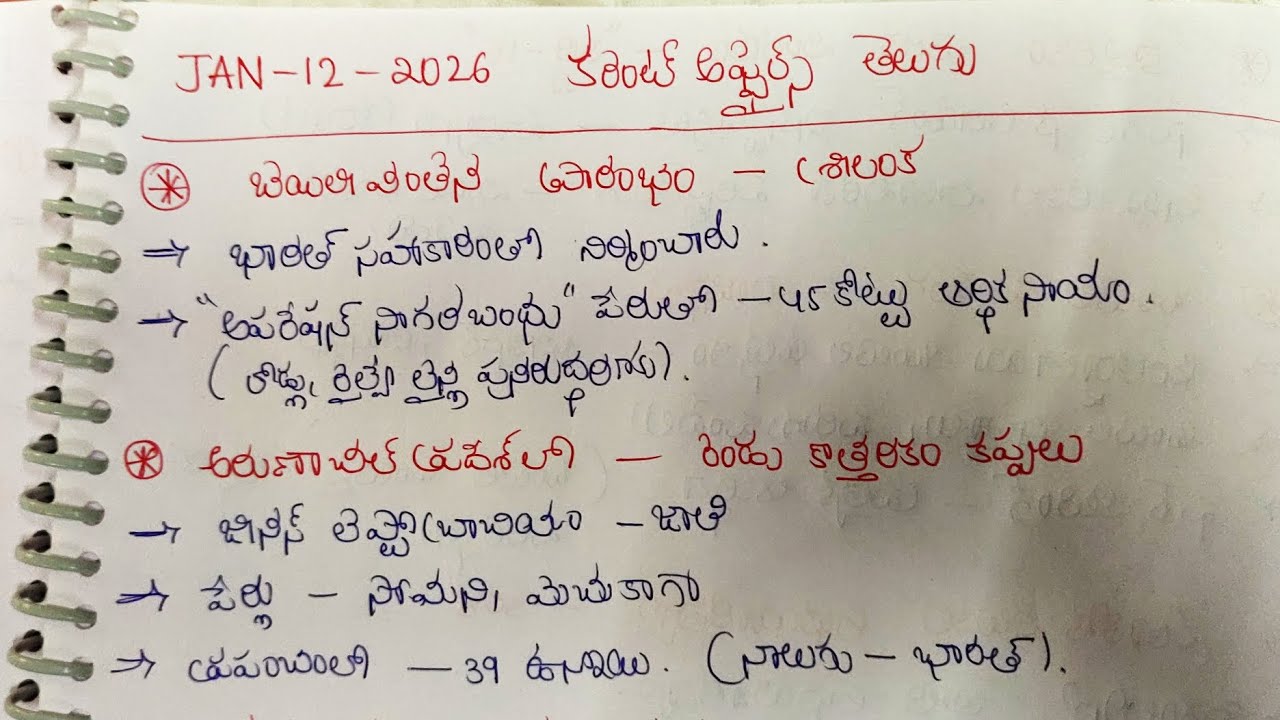 JAN-12-2026 కరెంట్ అఫ్ఫైర్స్ తెలుగు
బెయిలీ వంతెన ప్రారంభం - శ్రీలంక
⇒ భారత్ సహకారంతో నిర్మించారు.
→ "ఆపరేషన్ సాగర్ బంధు" పేరుతో - 45 కోట్లు ఆర్థిక సాయం.
( రోడ్లు, రైల్వే లైన్ల పునరుద్ధరణకు).
అరుణాచల్ ప్రదేశ్‌లో - రెండు కొత్తరకం కప్పలు
→ జీనస్ లెప్టోబ్రాచియం - జాతి
⇒ పేర్లు - సోమని, మెచుకాగా
⇒ ప్రపంచంలో - 39 ఉన్నాయి. (నాలుగు - భారత్).